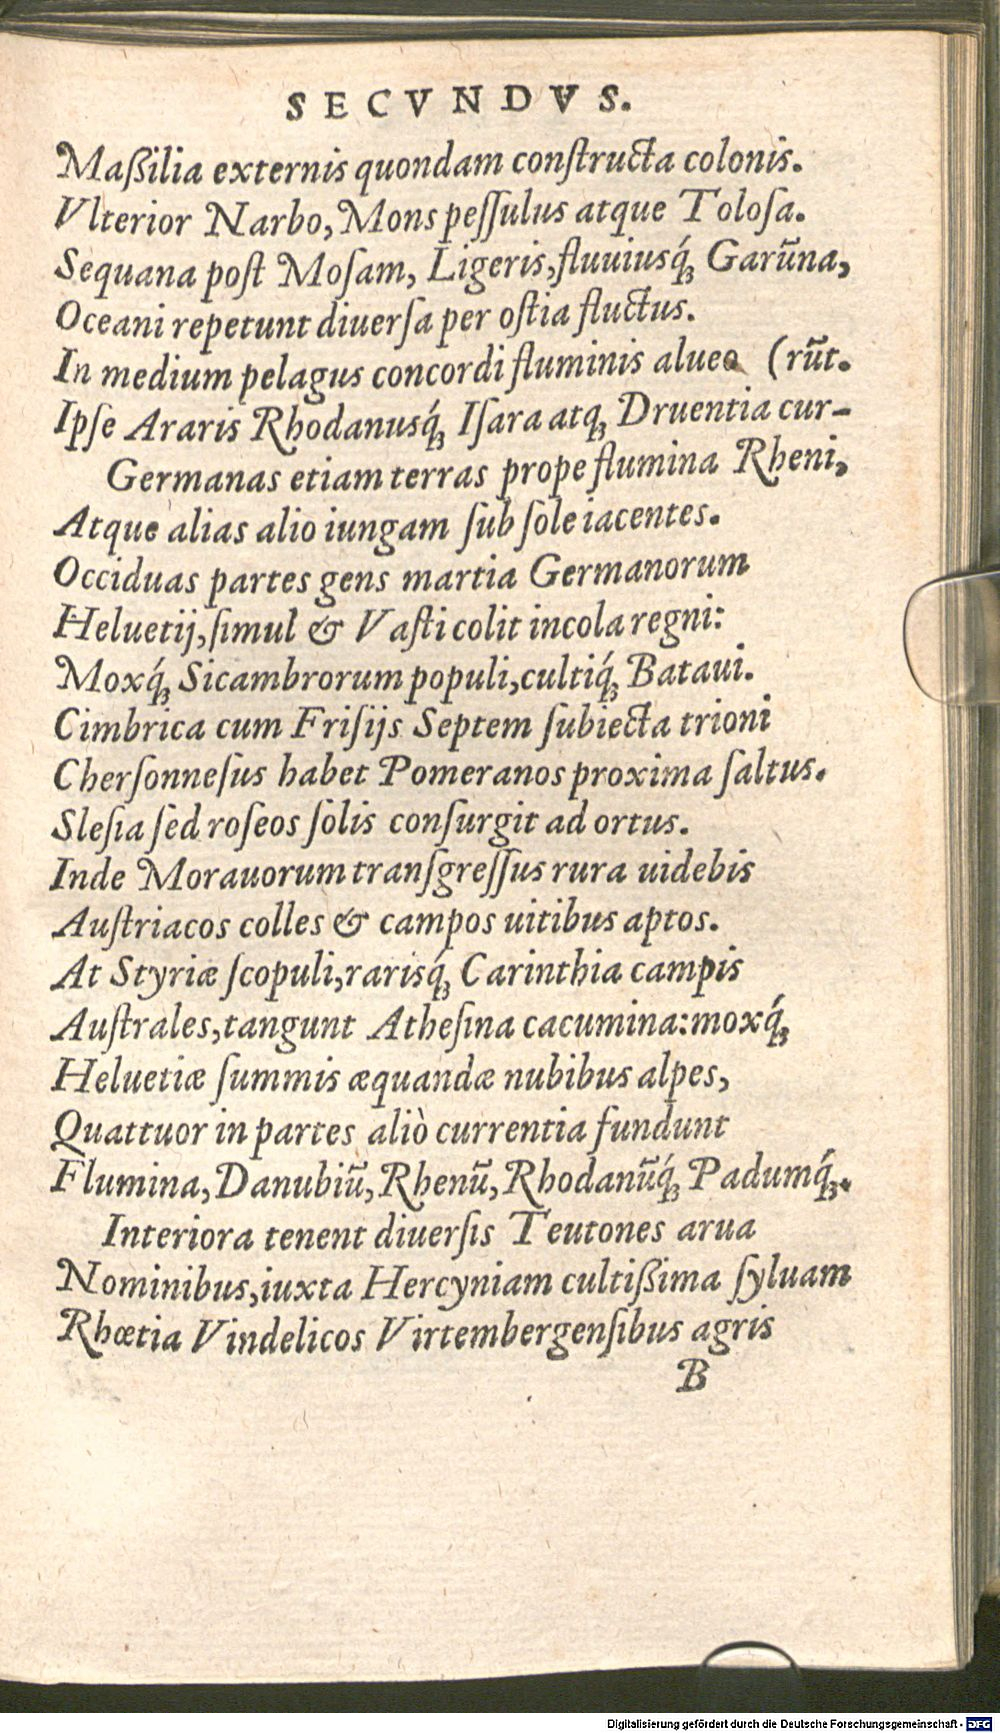 SECVNDVS.
Maßilia externis quondam conſtructa colonis.
Vlterior Narbo, Mons peſſulus atque Toloſa.
Sequana poſt Moſam, Ligeris, fluuiusq́ꝫ Garūna,
Oceani repetunt diuerſa per oſtia fluctus.
In medium pelagus concordi fluminis alueo (rūt.
Ipſe Araris Rhodanusq́ꝫ Iſara atqꝫ Druentia cur-
Germanas etiam terras prope flumina Rheni,
Atque alias alio iungam ſub ſole iacentes.
Occiduas partes gens martia Germanorum
Heluetij, ſimul & Vaſti colit incola regni:
Moxq́ꝫ Sicambrorum populi, cultiq́ꝫ Bataui.
Cimbrica cum Friſijs Septem ſubiecta trioni
Cherſonneſus habet Pomeranos proxima ſaltus.
Sleſia ſed roſeos ſolis conſurgit ad ortus.
Inde Morauorum tranſgreſſus rura uidebis
Auſtriacos colles & campos uitibus aptos.
At Styriæ ſcopuli, rarisq́ꝫ Carinthia campis
Auſtrales, tangunt Atheſina cacumina: moxq́ꝫ
Heluetiæ ſummis æquandæ nubibus alpes,
Quattuor in partes aliò currentia fundunt
Flumina, Danubiū, Rhenū, Rhodanūq́ꝫ Padumq́ꝫ.
Interiora tenent diuerſis Teutones arua
Nominibus, iuxta Hercyniam cultißima ſyluam
Rhœtia Vindelicos Virtembergenſibus agris
B
Digitalisierung gefördert durch die Deutsche Forschungsgemeinschaft - DFG